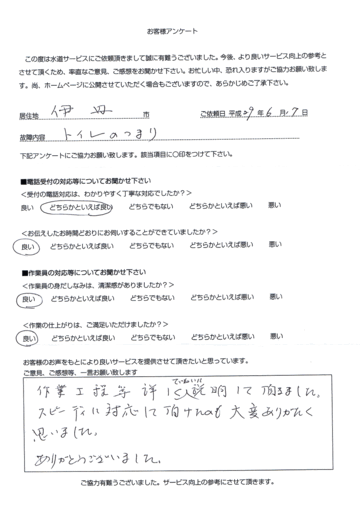 お客様アンケート
この度は水道サービスにご依頼頂きまして誠に有難うございました。今後、より良いサービス向上の参考と
させて頂くため、率直なご意見、ご感想をお聞かせ下さい。お忙しい中、恐れ入りますがご協力お願い致しま
す。尚、ホームページに公開させていただく場合もございますので、あらかじめご了承下さい。
居住地 伊丹 市 ご依頼日 平成 29 年 6 月 7 日
故障内容 トイレのつまり
下記アンケートにご協力お願い致します。該当項目に〇印をつけて下さい。
■電話受付の対応等についてお聞かせ下さい
<受付の電話対応は、わかりやすく丁寧な対応でしたか?>
良い どちらかといえば良い どちらでもない どちらかといえば悪い 悪い
<お伝えしたお時間どおりにお伺いすることができていましたか?>
良い どちらかといえば良い どちらでもない どちらかといえば悪い 悪い
■作業員の対応等についてお聞かせ下さい
<作業員の身だしなみは、清潔感がありましたか?>
良い どちらかといえば良い どちらでもない どちらかといえば悪い 悪い
<作業の仕上がりは、ご満足いただけましたか?>
良い どちらかといえば良い どちらでもない どちらかといえば悪い 悪い
お客様のお声をもとにより良いサービスを提供させて頂きたいと思っています。
ご意見、ご感想等、一言お願い致します
ていねいに
作業工程等詳しく説明して頂きました。
スピーディに対応して頂けたのも大変ありがたく
思いました。
ありがとうございました。
ご協力有難うございました。サービス向上の参考にさせて頂きます。